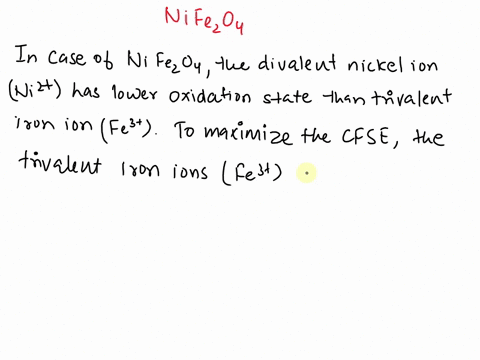 NiFe₂O₄
In case of NiFe₂O₄, the divalent nickel ion
(Ni²⁺) has lower oxidation state than trivalent
iron ion (Fe³⁺). To maximize the CFSE, the
trivalent iron ions (Fe³⁺)